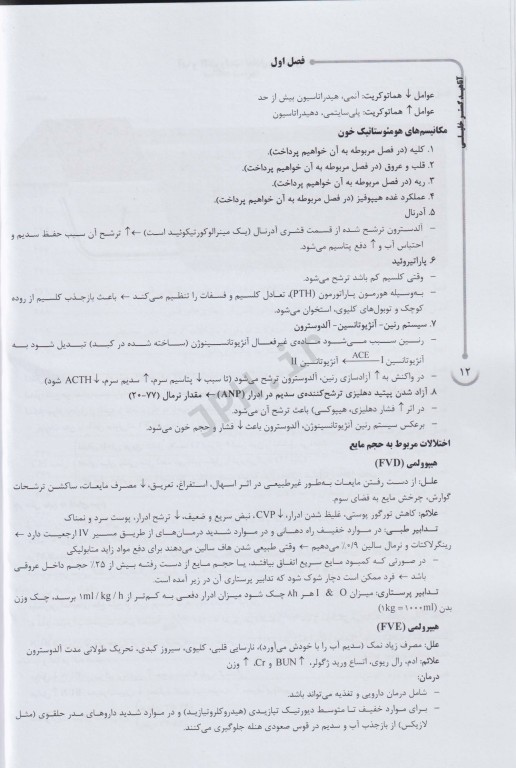 فصل اول
آناهید کمتر خلیلی
۱۲
عوامل ↓ هماتوکریت: آنمی، هیدراتاسیون بیش از حد
عوامل ↑ هماتوکریت: پلی‌سایتمی، دهیدراتاسیون
مکانیسم‌های هومئوستاتیک خون
۱. کلیه (در فصل مربوطه به آن خواهیم پرداخت).
۲. قلب و عروق (در فصل مربوطه به آن خواهیم پرداخت).
۳. ریه (در فصل مربوطه به آن خواهیم پرداخت).
۴. عملکرد غده هیپوفیز (در فصل مربوطه به آن خواهیم پرداخت).
۵. آدرنال
– آلدسترون ترشح شده از قسمت قشری آدرنال (یک مینرالوکورتیکوئید است) ←↑ ترشح آن سبب حفظ سدیم و
احتباس آب و ↓ دفع پتاسیم می‌شود.
۶. پاراتیروئید
– وقتی کلسیم کم باشد ترشح می‌شود.
– به‌وسیله هورمون پاراتورمون (PTH)، تعادل کلسیم و فسفات را تنظیم می‌کند ← باعث بازجذب کلسیم از روده
کوچک و توبول‌های کلیوی، استخوان می‌شود.
۷. سیستم رنین- آنژیوتانسین- آلدوسترون
– رنین سبب می‌شود ماده‌ی غیرفعال آنژیوتانسینوژن (ساخته شده در کبد) تبدیل شود به
آنژیوتانسین I ←ACE آنژیوتانسین II
– در واکنش به ↑ آزادسازی رنین، آلدوسترون ترشح می‌شود (تا سبب ↓ پتاسیم سرم، ↑ سدیم سرم، ↓ACTH شود)
۸. آزاد شدن پپتید دهلیزی ترشح‌کننده‌ی سدیم در ادرار (ANP) ← مقدار نرمال (۷۷-۲۰)
– در اثر ↑ فشار دهلیزی، هیپوکسی) باعث ترشح آن می‌شود.
– برعکس سیستم رنین آنژیوتانسینوژن، آلدوسترون باعث ↓ فشار و حجم خون می‌شود.
اختلالات مربوط به حجم مایع
هیپوولمی (FVD)
علل: از دست رفتن مایعات به‌طور غیرطبیعی در اثر اسهال، استفراغ، تعریق، ↓ مصرف مایعات، ساکشن ترشحات
گوارش، چرخش مایع به فضای سوم.
علائم: کاهش تورگور پوستی، غلیظ شدن ادرار، ↓CVP، نبض سریع و ضعیف، ↓ ترشح ادرار، پوست سرد و نمناک
تدابیر طبی: در موارد خفیف راه دهانی و در موارد شدید درمان‌های از طریق مسیر IV ارجعیت دارد ←
رینگرلاکتات و نرمال سالین ۰/۹٪ می‌دهیم ← وقتی طبیعی شدن هاف سالین می‌دهند برای دفع مواد زاید متابولیکی
– در صورتی که کمبود مایع سریع اتفاق بیافتد، یا حجم مایع از دست رفته بیش از ۲۵٪ حجم داخل عروقی
باشد ← فرد ممکن است دچار شوک شود که تدابیر پرستاری آن در زیر آمده است
تدابیر پرستاری: میزان I & O هر 8h چک شود میزان ادرار دفعی به کم‌تر از 1ml / kg / h برسد، چک وزن
بدن (1kg = ۱۰۰۰ml)
هیپرولمی (FVE)
علل: مصرف زیاد نمک (سدیم آب را با خودش می‌آورد)، نارسایی قلبی، کلیوی، سیروز کبدی، تحریک طولانی مدت آلدوسترون
علائم: ادم، رال ریوی، اتساع ورید ژگولر، ↑ BUN و Cr، ↑ وزن
درمان:
– شامل درمان دارویی و تغذیه می‌تواند باشد.
– برای موارد خفیف تا متوسط دیورتیک تیازیدی (هیدروکلروتیازید) و در موارد شدید داروهای مدر حلقوی (مثل
لازیکس) از بازجذب آب و سدیم در قوس صعودی هنله جلوگیری می‌کنند.